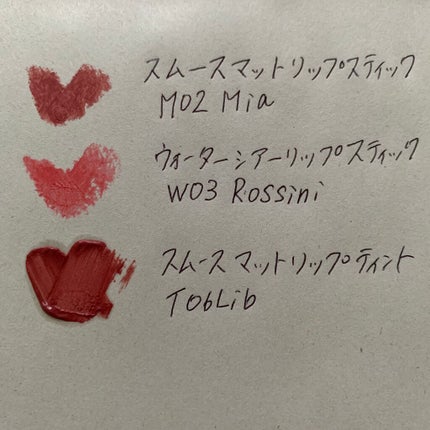 スムースマットリップスティック
M02 Mia
ウォーターシアーリップスティック
W03 Rossini
スムースマットリップティント
T06Lib